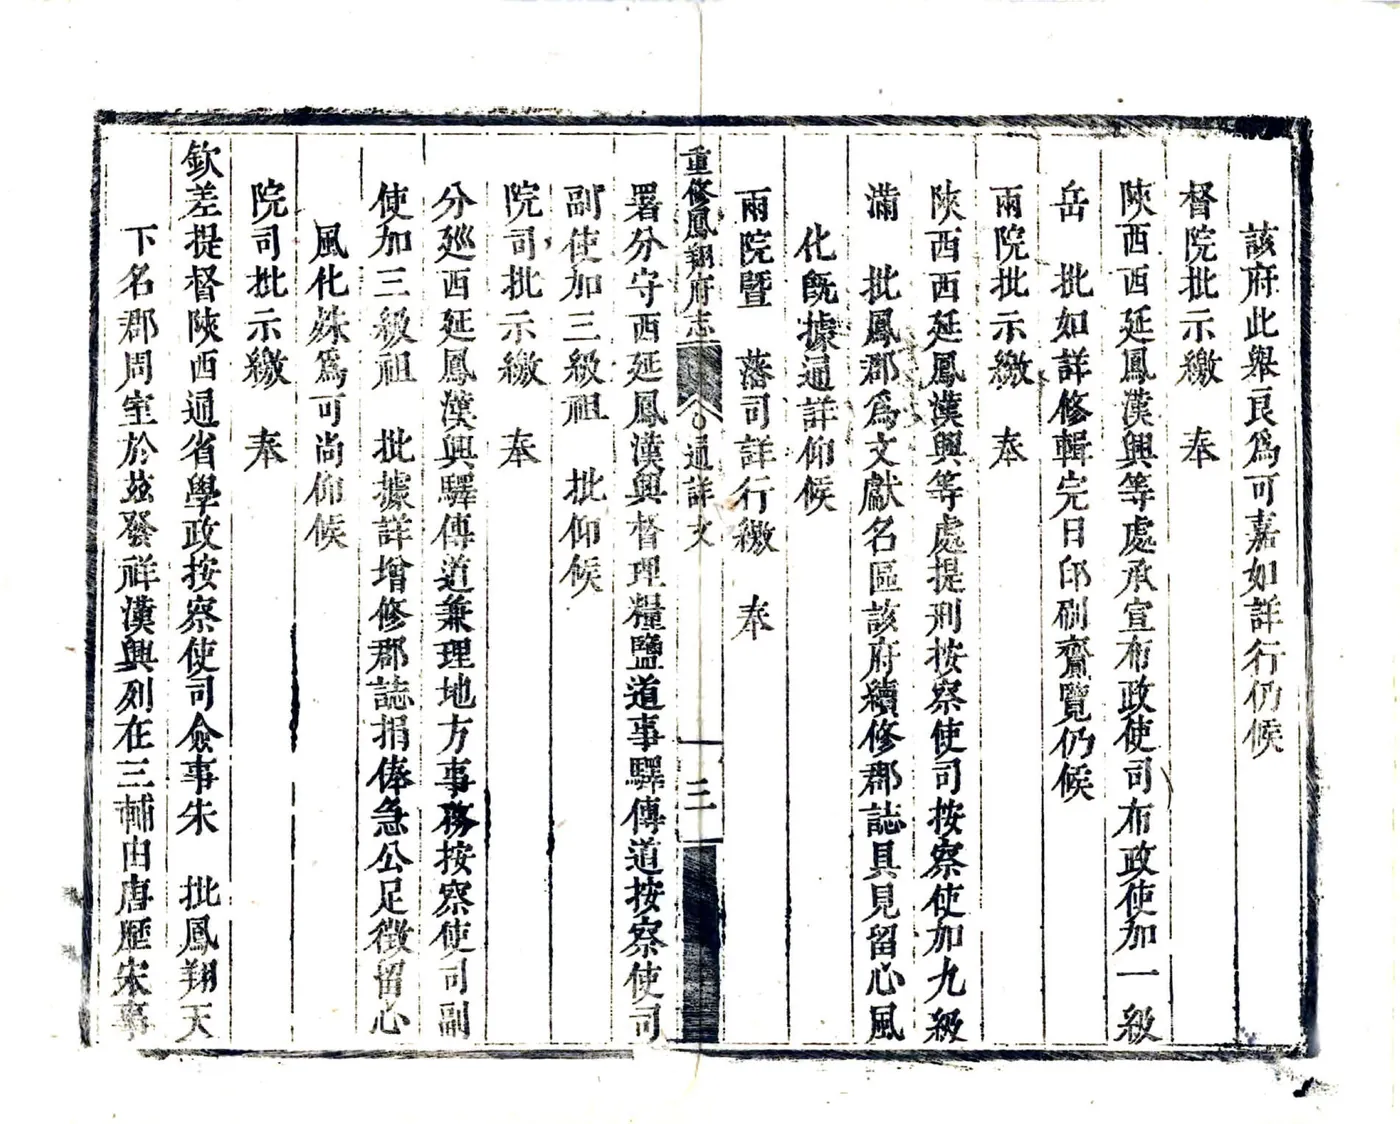 該府此舉良爲可嘉如詳行仍候
督院批示繳　奉
陝西西延鳳漢興等處承宣布政使司布政使加一級
岳　批如詳修輯完日印刷齎覽仍候
兩院批示繳　奉
陝西西延鳳漢興等處提刑按察使司按察使加九級
滿　批鳳郡爲文獻名區該府續修郡誌具見留心風
化既據通詳仰候
兩院暨　藩司詳行繳　奉
重修鳳翔府志　通詳文　三
署分守西延鳳漢興督理糧鹽道事驛傳道按察使司
副使加三級祖　批仰候
院司批示繳　奉
分巡西延鳳漢興驛傳道兼理地方事務按察使司副
使加三級祖　批據詳增修郡誌捐俸急公足徵留心
風化殊爲可尚仰候
院司批示繳　奉
欽差提督陝西通省學政按察使司僉事朱　批鳳翔天
下名郡周室於茲發祥漢興列在三輔由唐歷宋事